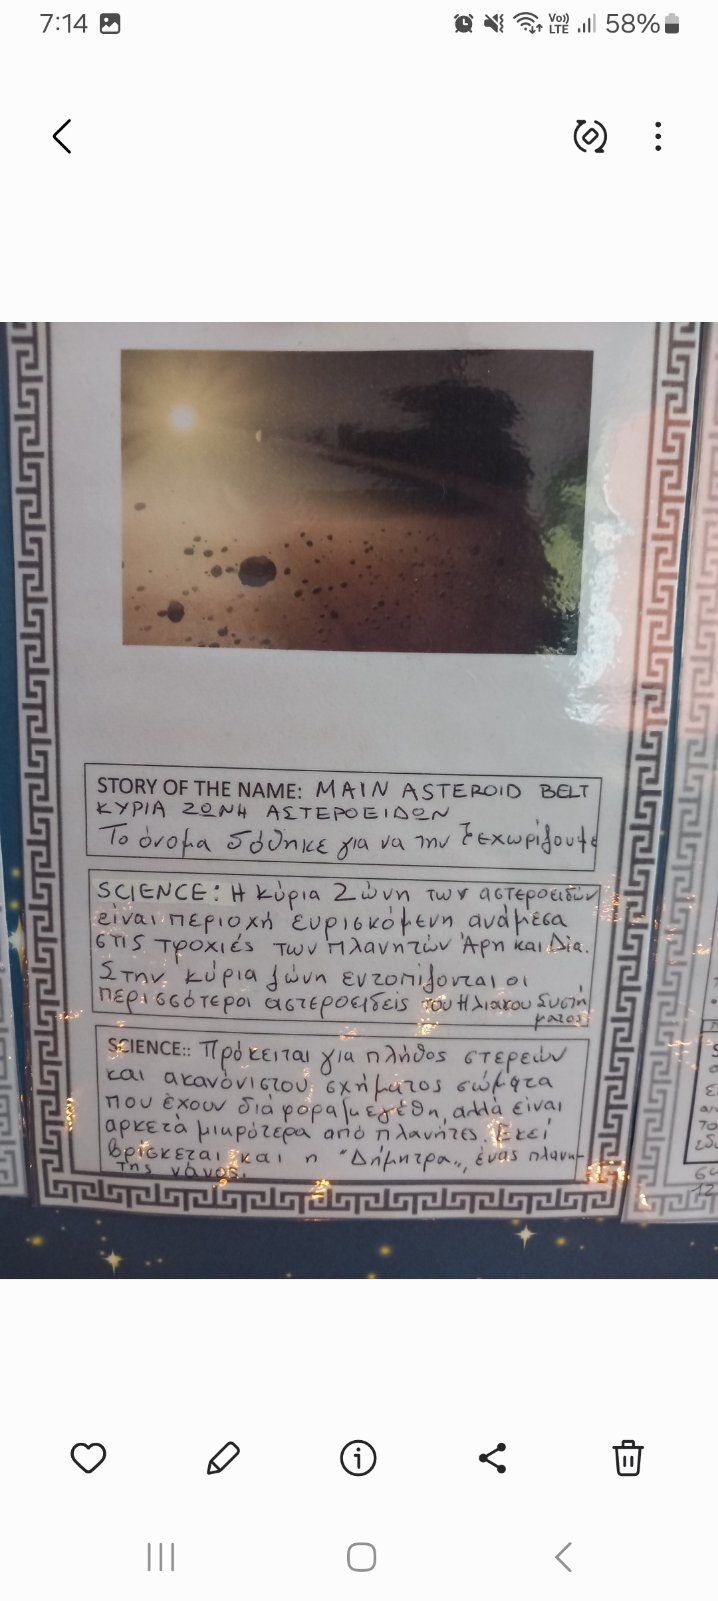 7:14
Vo)) LTE 58%
STORY OF THE NAME: MAIN ASTEROID BELT
ΚΥΡΙΑ ΖΩΝΗ ΑΣΤΕΡΟΕΙΔΩΝ
Το όνομα δόθηκε για να την ξεχωρίζουμε
SCIENCE: Η κύρια Ζώνη των αστεροειδών
είναι περιοχή ευρισκόμενη ανάμεσα
στις τροχιές των πλανητών Άρη και Δία.
Στην κύρια ζώνη εντοπίζονται οι
περισσότεροι αστεροειδείς του Ηλιακου Συστή
ματος
SCIENCE:: Πρόκειται για πλήθος στερεών
και ακανόνιστου σχήματος σώματα
που έχουν διάφορα μεγέθη, αλλά είναι
αρκετά μικρότερα από πλανήτες. Εκεί
βρίσκεται και η "Δήμητρα", ένας πλανή-
της νάνος.